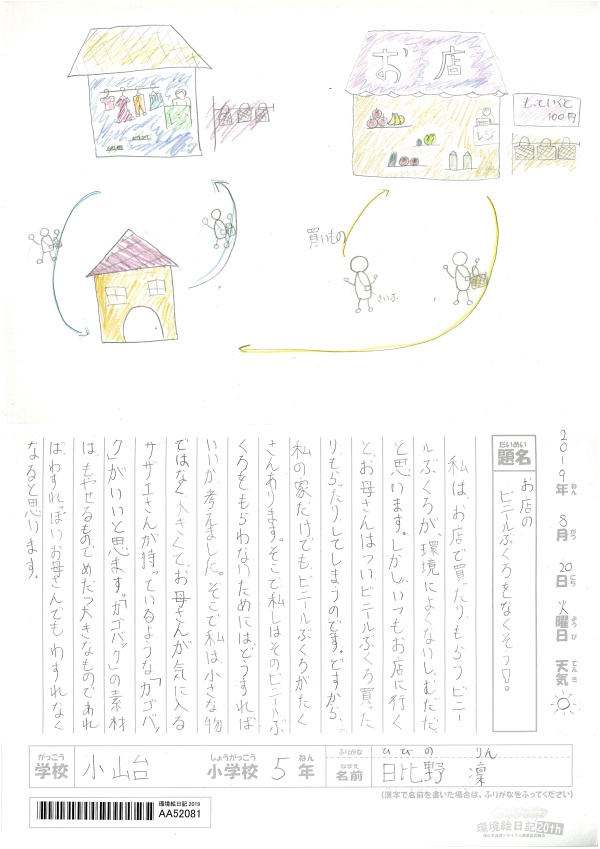 お店
レジ
もっていくと
100円
買いもの
さいふ
2019年 8月 20日 火曜日 天気
ねん がつ にち よう び てん き
だいめい
題名
お店の
ビニールぶくろをなくそう!。
私は、お店で買たり、もらうビニー
ルぶくろが、環境によくないし、むだだ
と思います。しかし、いつもお店に行く
と、お母さんはついビニールぶくろ買った
りもらったりしてしまうのです。ですから、
私の家だけでも、ビニールぶくろがたく
さんあります。そこで私しはそのビニールぶ
くろをもらわないためにはどうすれば
いいか考えました。そこで私は小さな物
ではなく、大きくて、お母さんが気に入る
サザエさんが持っているような「カゴバッ
ク」がいいと思ます。「カゴバック」の素材
は、もやせるものでめだつ大きなものであれ
ば、わすれっぽいお母さんでもわすれなく
なると思います。
がっこう
学校
小山台
しょうがっこう
小学校
5
ねん
年
ふりがな
ひびの りん
なまえ
名前
日比野 凜
(漢字で名前を書いた場合は、ふりがなをふってください)
環境絵日記 2019
AA52081
環境絵日記 20th